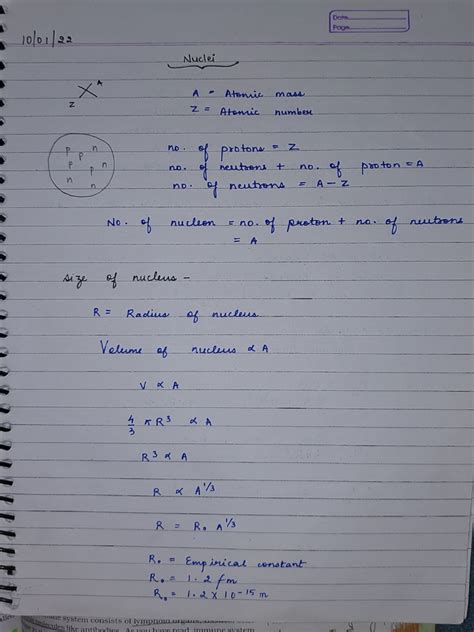 Date
Page
10/01/22
Nuclei
X A
Z
A = Atomic mass
Z = Atomic number
p n
p n
p p
n n
n
no. of protons = Z
no. of neutrons + no. of proton = A
no. of neutrons = A - Z
No. of nucleon = no. of proton + no. of neutrons
= A
Size of nucleus -
R = Radius of nucleus
Volume of nucleus ∝ A
V ∝ A
4/3 π R³ ∝ A
R³ ∝ A
R ∝ A^1/3
R = R₀ A^1/3
R₀ = Empirical constant
R₀ = 1.2 fm
R₀ = 1.2 × 10⁻¹⁵ m
system consists of lymphoid organs,
like antibodies. As you have read, immune system